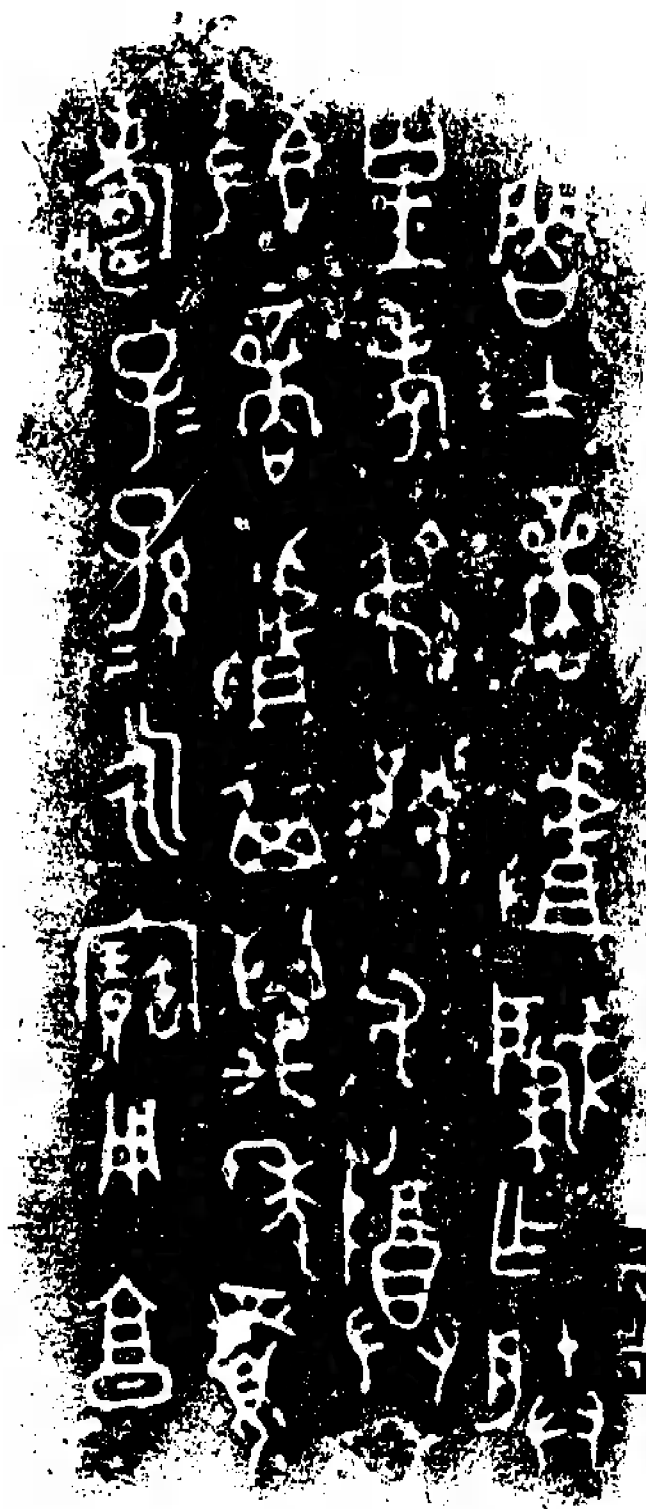 魯士商𠭯肇乍朕
皇考叔猒父尊
簋商𠭯其萬年眉
壽子=孫=永寶用享